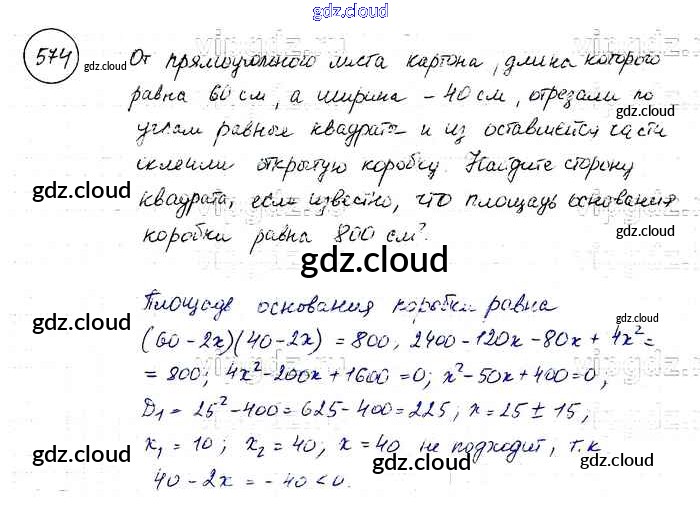 gdz.cloud
574 gdz.cloud От прямоугольного листа картона, длина которого
равна 60 см, а ширина - 40 см, отрезали по
углам равные квадраты и из оставшейся части
склеили открытую коробку. Найдите сторону
квадрата, если известно, что площадь основания
коробки равна 800 см².
gdz.cloud
Площадь основания коробки равна
(60-2x)(40-2x) = 800, 2400-120x-80x+4x²=
= 800; 4x²-200x+1600=0; x²-50x+400=0,
D₁=25²-400=625-400=225; x=25±15,
x₁=10; x₂=40, x=40 не подходит, т.к
40-2x=-40<0.
gdz.cloud
gdz.cloud
gdz.cloud
gdz.cloud
gdz.cloud
gdz.cloud
gdz.cloud
gdz.cloud
gdz.cloud
gdz.cloud